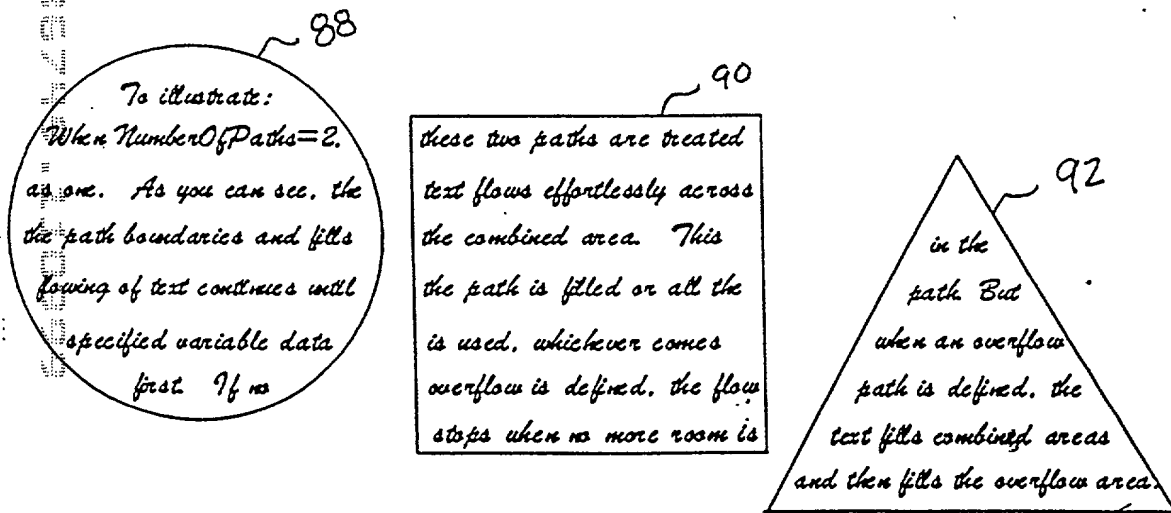 88
To illustrate:
When NumberOfPaths=2,
as one. As you can see, the
the path boundaries and fills
flowing of text continues until
specified variable data
first. If no
90
these two paths are treated
text flows effortlessly across
the combined area. This
the path is filled or all the
is used, whichever comes
overflow is defined, the flow
stops when no more room is
92
in the
path. But
when an overflow
path is defined, the
text fills combined areas
and then fills the overflow area.